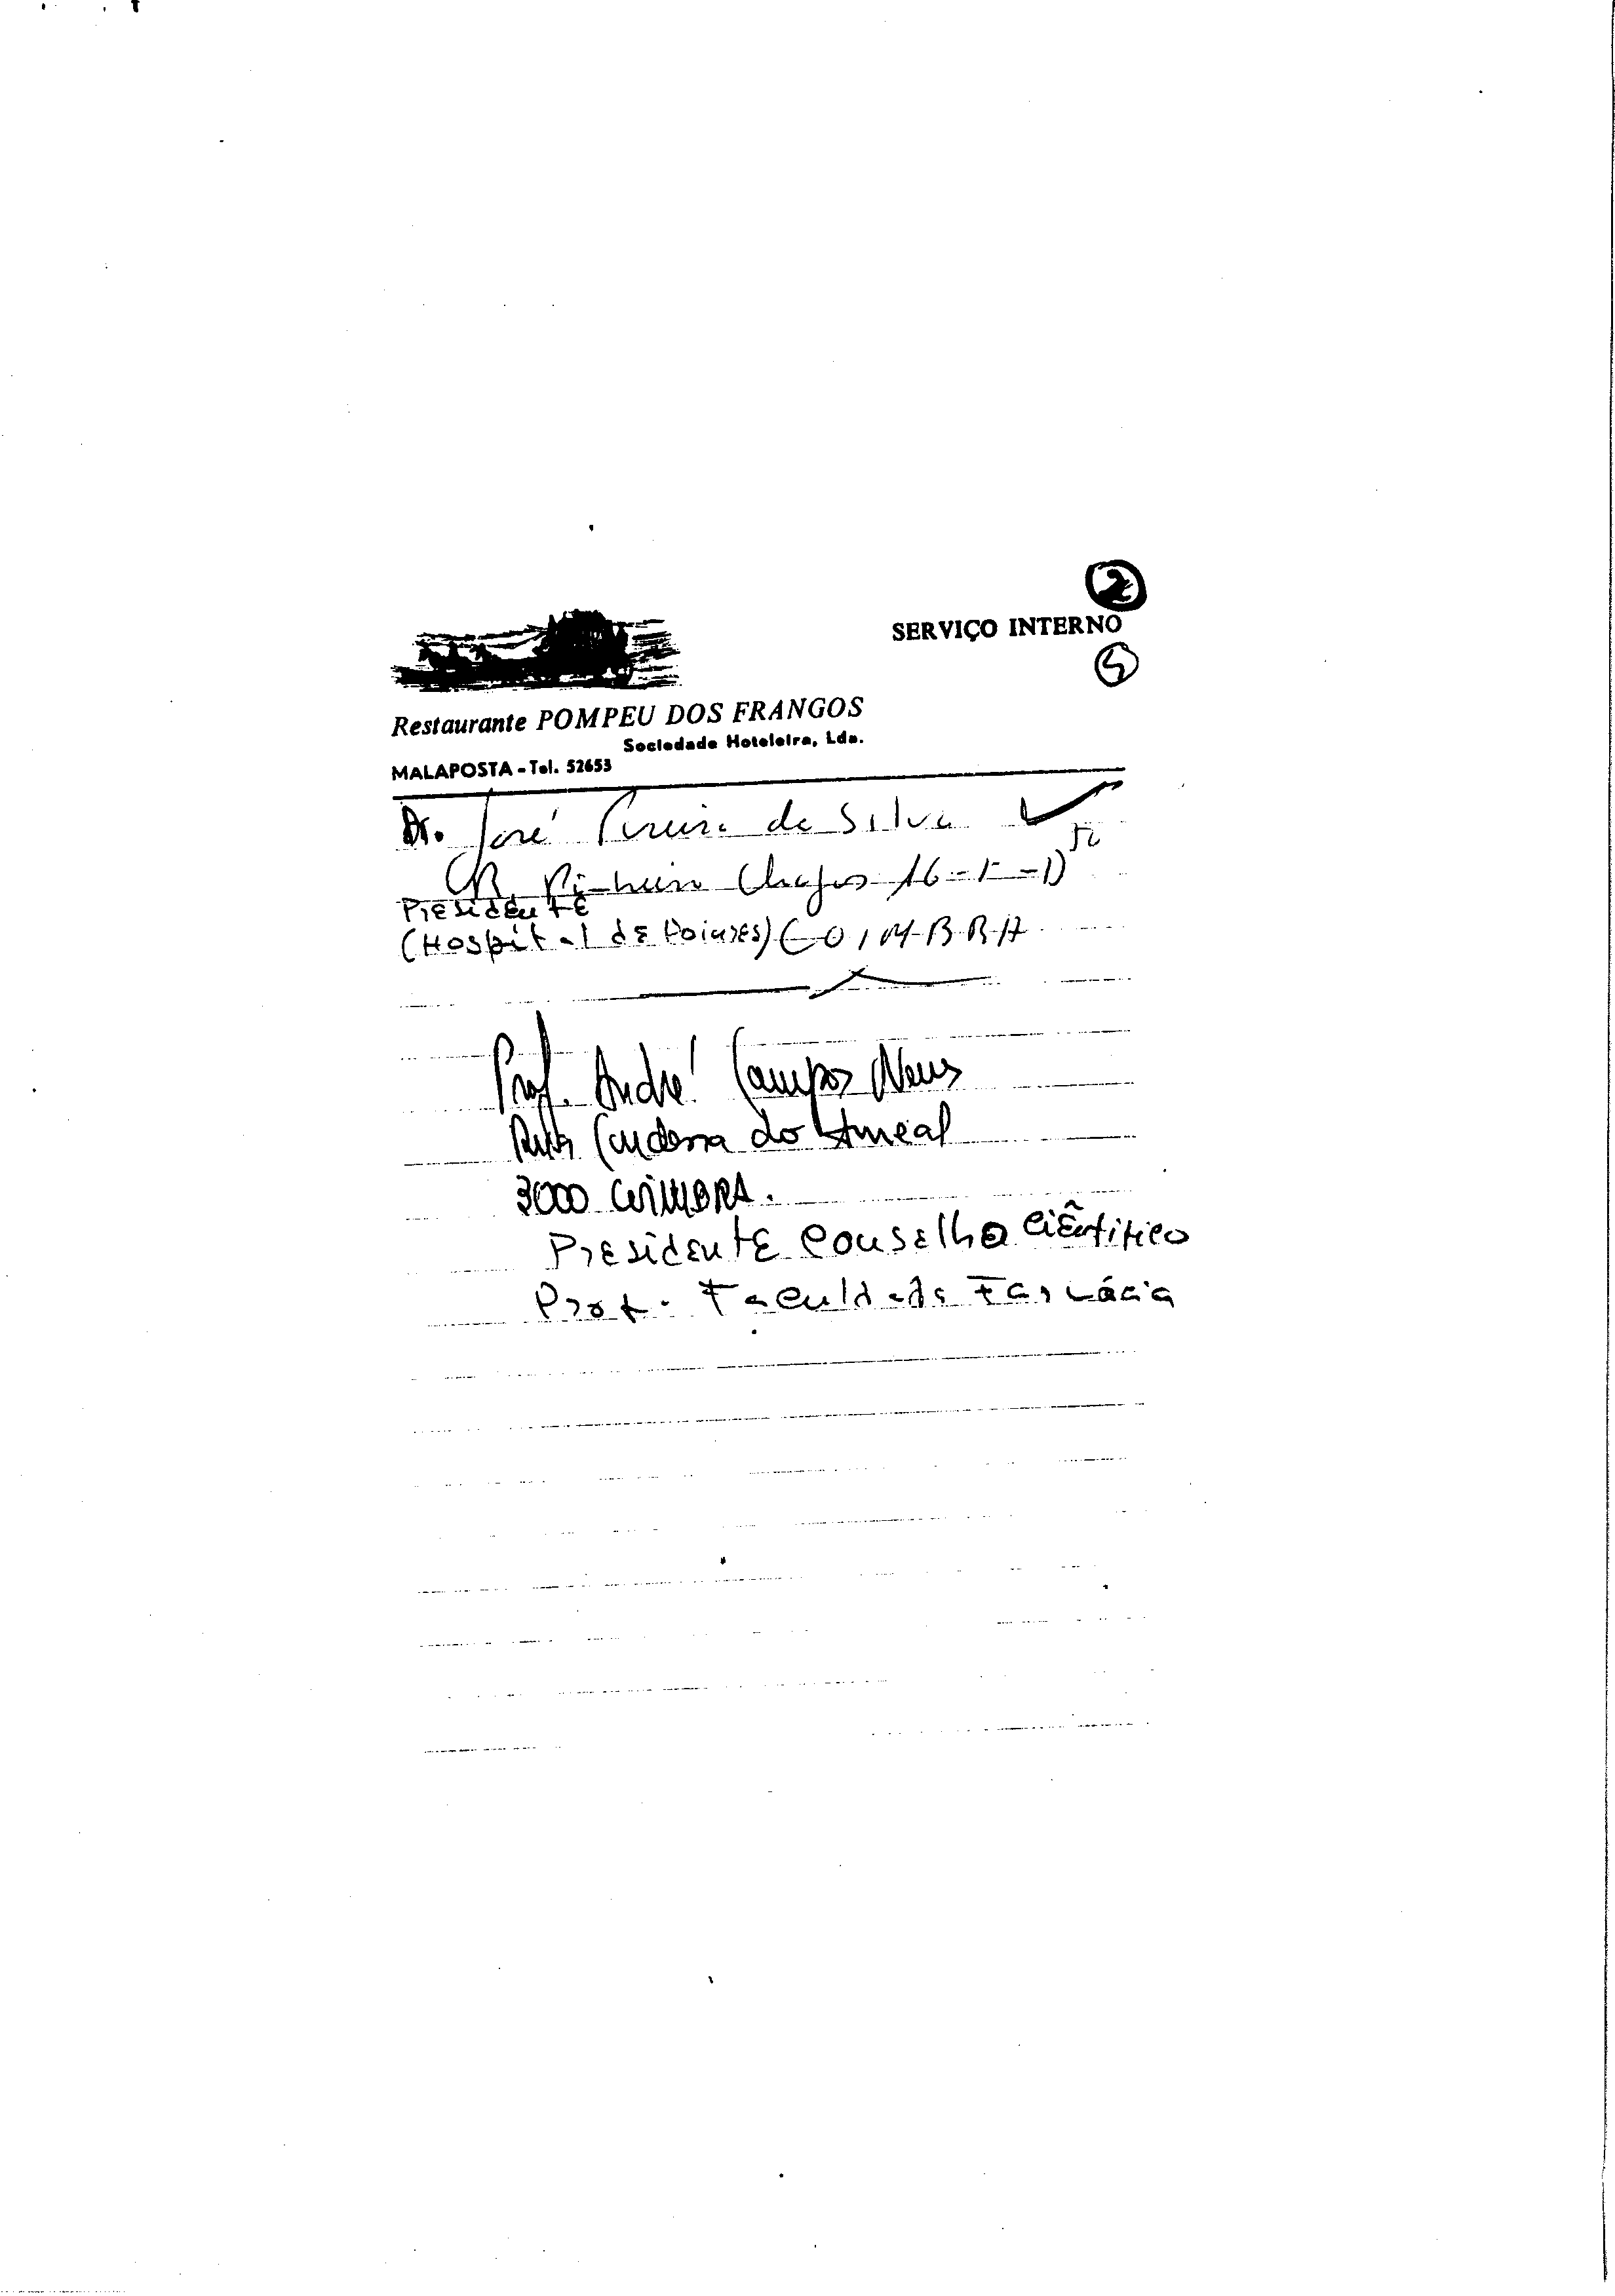 2
SERVIÇO INTERNO
5
Restaurante POMPEU DOS FRANGOS
Sociedade Hoteleira, Lda.
MALAPOSTA - Tel. 52653
Dr. José Pereira da Silva
R. Pinheiro Chagas 16-1-
Presidente
(Hospital de Poiares) COIMBRA
Prof. André Campos Neves
do Ameal
3000 COIMBRA.
Presidente Conselho Científico
Prof. Faculdade Farmácia